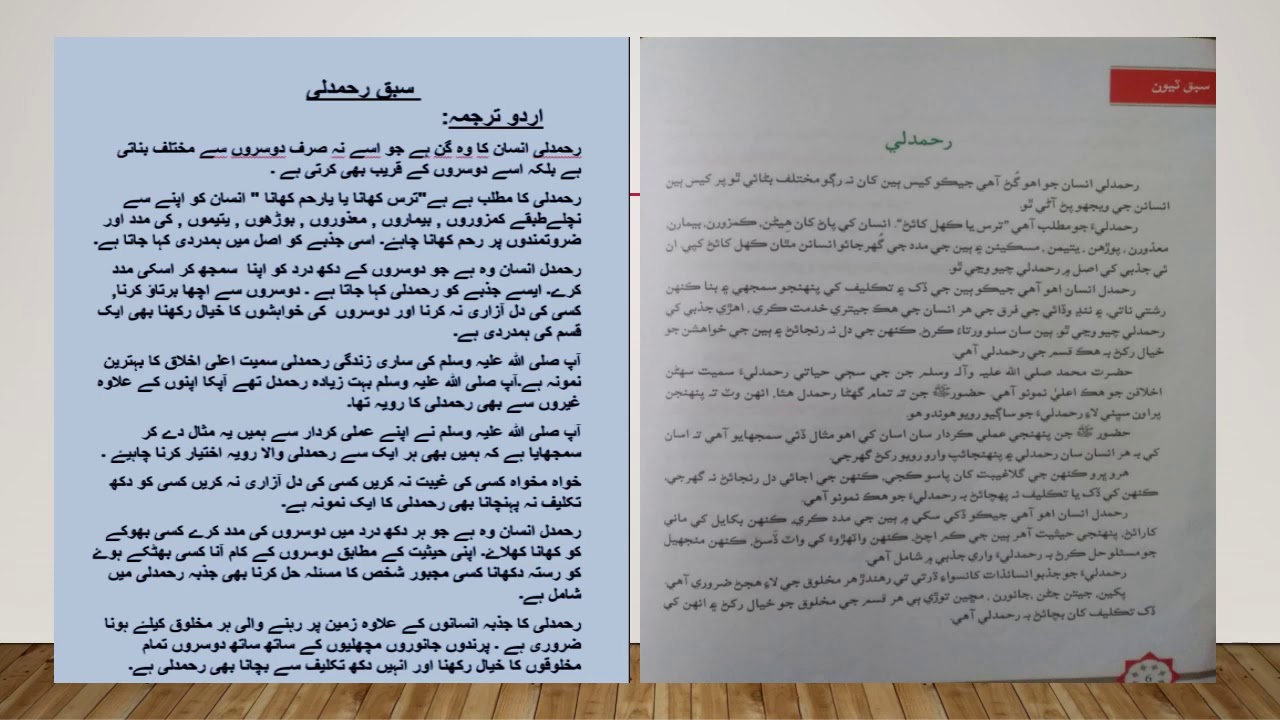 سبق رحمدلی
اردو ترجمہ:
رحمدلی انسان کا وہ گن ہے جو اسے نہ صرف دوسروں سے مختلف بناتی
ہے بلکہ اسے دوسروں کے قریب بھی کرتی ہے ۔
رحمدلی کا مطلب ہے ہے"ترس کھانا یا یارحم کھانا " انسان کو اپنے سے
نچلےطبقے کمزوروں , بیماروں , معذوروں , بوڑھوں , یتیموں , کی مدد اور
ضروتمندوں پر رحم کھانا چاہے۔ اسی جذبے کو اصل میں ہمدردی کہا جاتا ہے۔
رحمدل انسان وہ ہے جو دوسروں کے دکھ درد کو اپنا سمجھ کر اسکی مدد
کرے۔ ایسے جذبے کو رحمدلی کہا جاتا ہے ۔ دوسروں سے اچھا برتاؤ کرنا,
کسی کی دل آزاری نہ کرنا اور دوسروں کی خواہشوں کا خیال رکھنا بھی ایک
قسم کی ہمدردی ہے۔
آپ صلی اللہ علیہ وسلم کی ساری زندگی رحمدلی سمیت اعلی اخلاق کا بہترین
نمونہ ہے۔آپ صلی اللہ علیہ وسلم بہت زیادہ رحمدل تھے آپکا اپنوں کے علاوہ
غیروں سے بھی رحمدلی کا رویہ تھا۔
آپ صلی اللہ علیہ وسلم نے اپنے عملی کردار سے ہمیں یہ مثال دے کر
سمجھایا ہے کہ ہمیں بھی ہر ایک سے رحمدلی والا رویہ اختیار کرنا چاہیئے ۔
خواہ مخواہ کسی کی غیبت نہ کریں کسی کی دل آزاری نہ کریں کسی کو دکھ
تکلیف نہ پہنچانا بھی رحمدلی کا ایک نمونہ ہے۔
رحمدل انسان وہ ہے جو ہر دکھ درد میں دوسروں کی مدد کرے کسی بھوکے
کو کھانا کھلاۓ۔ اپنی حیثیت کے مطابق دوسروں کے کام آنا کسی بھٹکے ہوۓ
کو رستہ دکھانا کسی مجبور شخص کا مسئلہ حل کرنا بھی جذبہ رحمدلی میں
شامل ہے۔
رحمدلی کا جذبہ انسانوں کے علاوہ زمین پر رہنے والی ہر مخلوق کیلئے ہونا
ضروری ہے ۔ پرندوں جانوروں مچھلیوں کے ساتھ ساتھ دوسروں تمام
مخلوقوں کا خیال رکھنا اور انہیں دکھ تکلیف سے بچانا بھی رحمدلی ہے۔
سبق ٽيون
رحمدلي
رحمدلي انسان جو اهو گُڻ آهي جيڪو کيس ٻين کان نہ رڳو مختلف بڻائي ٿو پر کيس ٻين
انسانن جي ويجهو پڻ آڻي ٿو.
رحمدليءَ جو مطلب آهي ”ترس يا ڪهل کائڻ“. انسان کي پاڻ کان هيڻن، ڪمزورن، بيمارن،
معذورن، پوڙهن، يتيمن، مسڪينن ۽ ٻين جي مدد جي گهرجائو انسانن مٿان ڪهل کائڻ کپي. ان
ئي جذبي کي اصل ۾ رحمدلي چيو وڃي ٿو.
رحمدل انسان اهو آهي جيڪو ٻين جي ڏک ۽ تڪليف کي پنهنجو سمجهي ۽ بنا ڪنهن
رشتي ناتي، ۽ ننڍ وڏائي جي فرق جي هر انسان جي هڪ جيتري خدمت ڪري، اهڙي جذبي کي
رحمدلي چيو وڃي ٿو. ٻين سان سٺو ورتاءُ ڪرڻ، ڪنهن جي دل نہ رنجائڻ ۽ ٻين جي خواهشن جو
خيال رکڻ بہ هڪ قسم جي رحمدلي آهي.
حضرت محمد صلي الله عليہ وآلہ وسلم جن جي سڄي حياتي رحمدليءَ سميت سهڻن
اخلاقن جو هڪ اعليٰ نمونو آهي. حضورﷺ جن تہ تمام گهڻا رحمدل هئا، انهن وٽ تہ پنهنجن
پراون سڀني لاءِ رحمدليءَ جو ساڳيو رويو هوندو هو.
حضور ﷺ جن پنهنجي عملي ڪردار سان اسان کي اهو مثال ڏئي سمجهايو آهي تہ اسان
کي بہ هر انسان سان رحمدلي ۽ پنهنجائپ وارو رويو رکڻ گهرجي.
هروڀرو ڪنهن جي گلاغيبت کان پاسو ڪجي، ڪنهن جي اجائي دل رنجائڻ نہ گهرجي،
ڪنهن کي ڏک يا تڪليف نہ پهچائڻ بہ رحمدليءَ جو هڪ نمونو آهي.
رحمدل انسان اهو آهي جيڪو ڏکي سکي ۾ ٻين جي مدد ڪري، ڪنهن بکايل کي ماني
کارائڻ، پنهنجي حيثيت آهر ٻين جي ڪم اچڻ، ڪنهن واٽهڙوءَ کي واٽ ڏسڻ، ڪنهن منجهيل
جو مسئلو حل ڪرڻ بہ رحمدليءَ واري جذبي ۾ شامل آهي.
رحمدليءَ جو جذبو انسانذات کانسواءِ ڌرتي تي رهندڙ هر مخلوق جي لاءِ هجڻ ضروري آهي.
پکين، جيتن جڻن، جانورن، مڇين توڙي ٻي هر قسم جي مخلوق جو خيال رکڻ ۽ انهن کي
ڏک تڪليف کان بچائڻ بہ رحمدلي آهي.
6